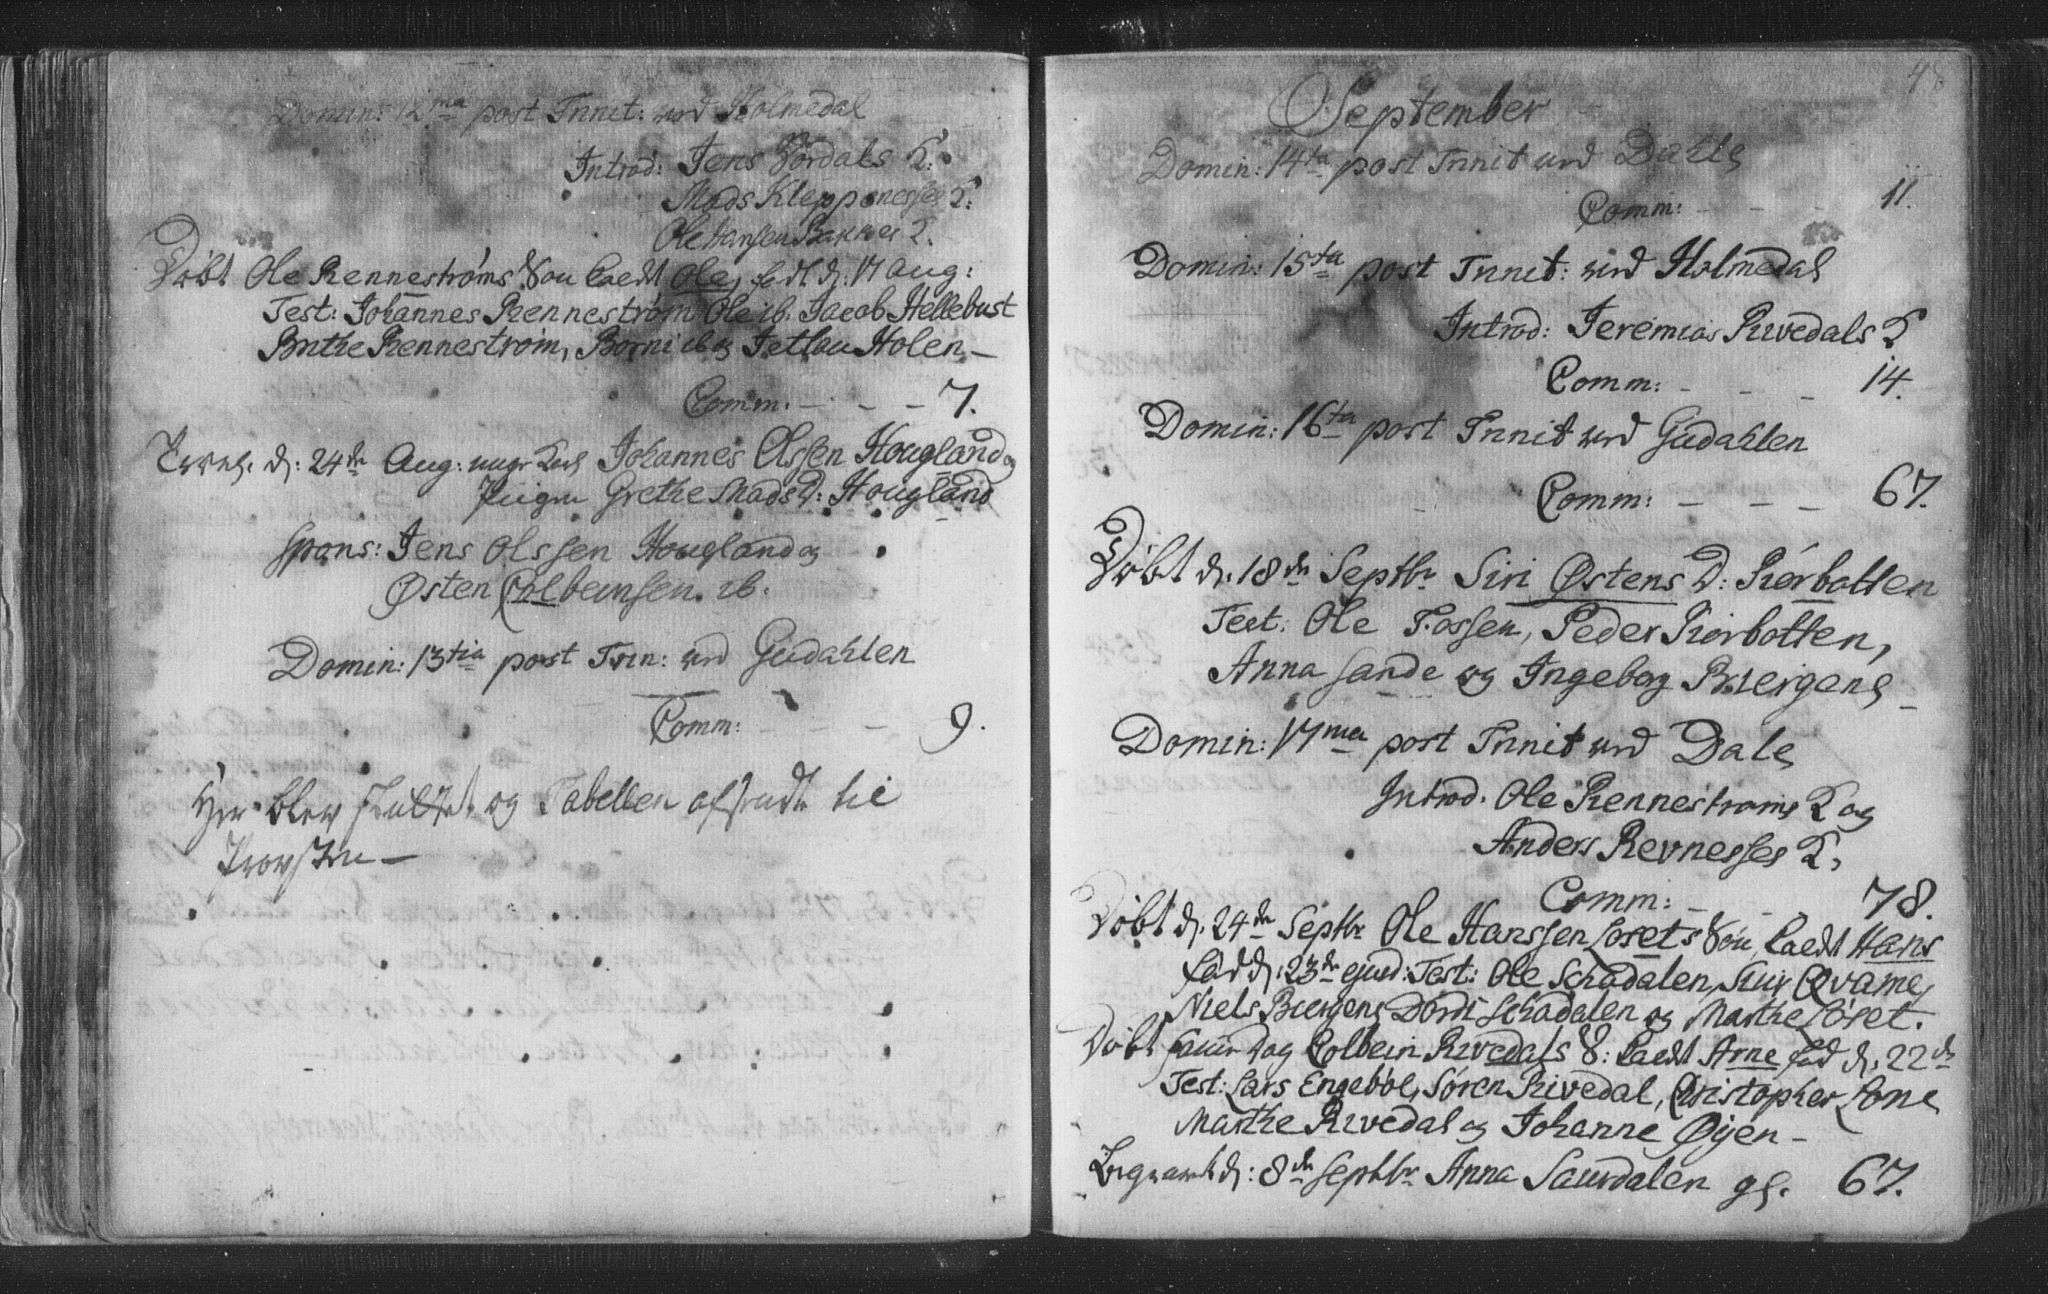 Domin: 12ma post Trinit: ved Holmedal
Introd: Jens Vordals K:
Mads Kleppenesses K:
Ole Hansen Bakkes K.
Døbt Ole Rennestrøms Søn kaldt Ole, fød d: 17 Aug:
Test: Johannes Rennestrøm Ole ib. Jacob Hellebust
Brithe Rennestrøm, Borni ib og Jetlau Holen
Comm: - - - 7.
Trol. d: 24de Aug: unge Karl Johannes Olssen Hougland og
Pigen Grethe Mads D: Hougland
Spons: Jens Olssen Hougland og
Østen Colbeinsen ib.
Domin: 13tia post Trin: ved Gudahlen
Comm: - - - 9.
Her blev sluttet og Tabellen afsendt til
Provsten -
48
September
Domin: 14ta post Trinit ved Dahle
Comm: - - - 11.
Domin: 15ta post Trinit: ved Holmedal
Introd: Jeremias Rivedals K
Comm: - - - 14.
Domin: 16ta post Trinit ved Gudahlen
Comm: - - - 67.
Døbt d. 18de Septbr Siri Østens D: Kiørbotten
Test: Ole Fossen, Peder Kiørbotten,
Anna Sande og Ingebor Biergene
Domin: 17ma post Trinit ved Dale
Introd. Ole Rennestrøms K og
Anders Revnesses K.
Comm: - - 78.
Døbt d. 24de Septbr Ole Hanssen Lorets Søn kaldt Hans
fød d: 23de ejusd: Test: Ole Schadalen, Siur Qvame,
Niels Biergene Dordi Schadalen og Marthe Løret.
Døbt samme Dag Colbein Rivedals S: kaldt Arne fød d. 22de
Test: Lars Engebøl, Søren Rivedal, Christopher Lone
Marthe Rivedal og Johanne Øyen -
Begravet d: 8de Septbr Anna Saurdalen gl. 67.